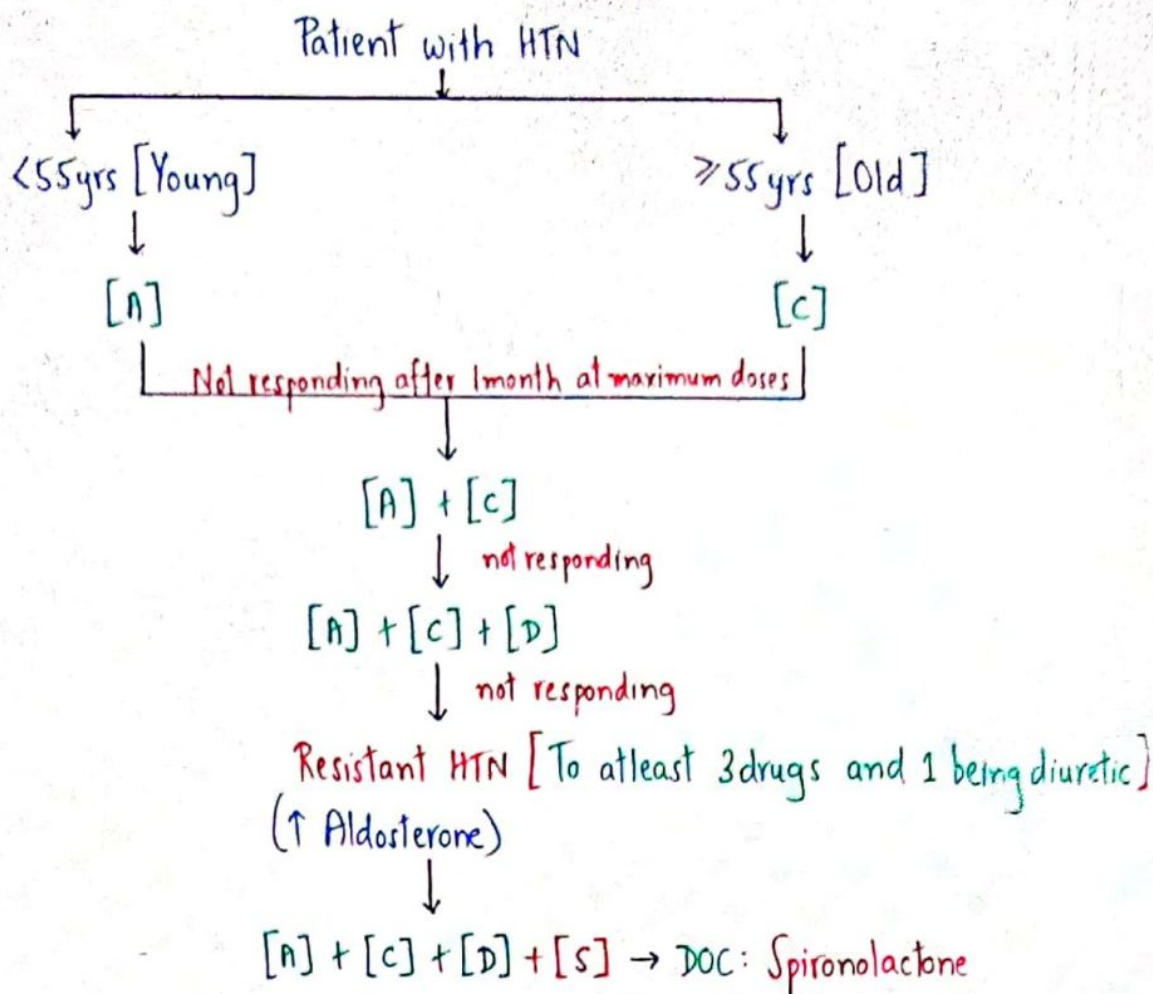 Patient with HTN
<55yrs [Young]
≥55yrs [Old]
[A]
[C]
Not responding after 1month at maximum doses
[A] + [C]
not responding
[A] + [C] + [D]
not responding
Resistant HTN [To atleast 3drugs and 1 being diuretic]
(↑ Aldosterone)
[A] + [C] + [D] + [S] → DOC: Spironolactone